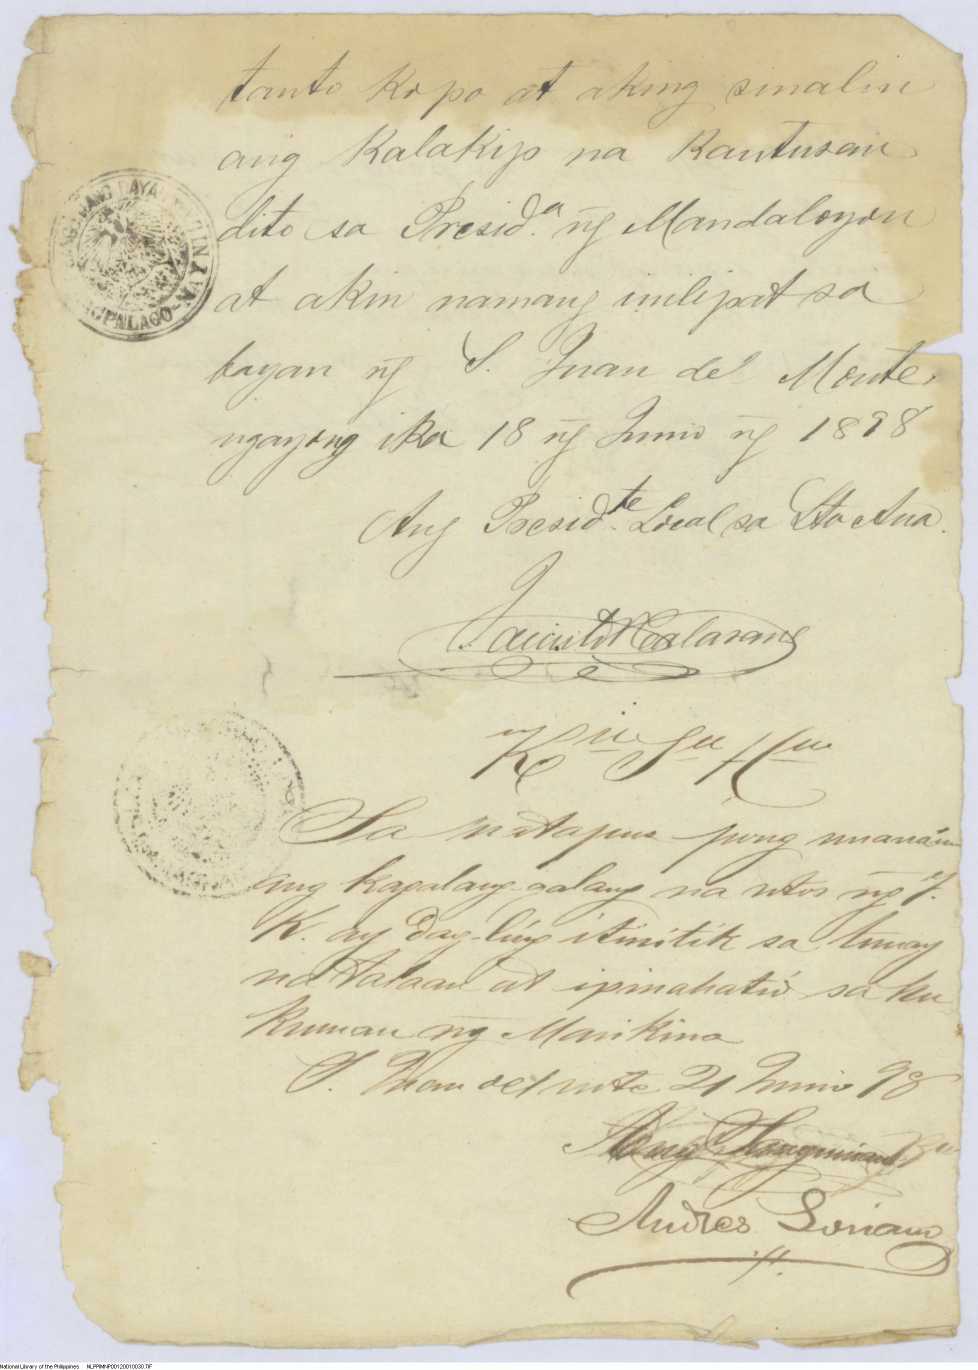 tanto ko po at aking sinalin
ang Kalakip na Kautusan
dito sa Presid.a ng̃ Mandaloyon
at akin namang inilipat sa
bayan ng̃ S. Juan del Monte,
ngayong ika 18 ng̃ Junio ng̃ 1898
Ang Presid.te Local sa Sta Ana.
Kalasang
Sa matapus pong
ang kagalang-galang na utos ng̃ I.
K. ay dag-ling itinitik sa tunay
na talaan at ipinahatid sa hu
kuman ng̃ Marikina
S. Juan del mte 21 Junio 98
Andres Soriano
National Library of the Philippines NLPPIMNP00120010030.TIF